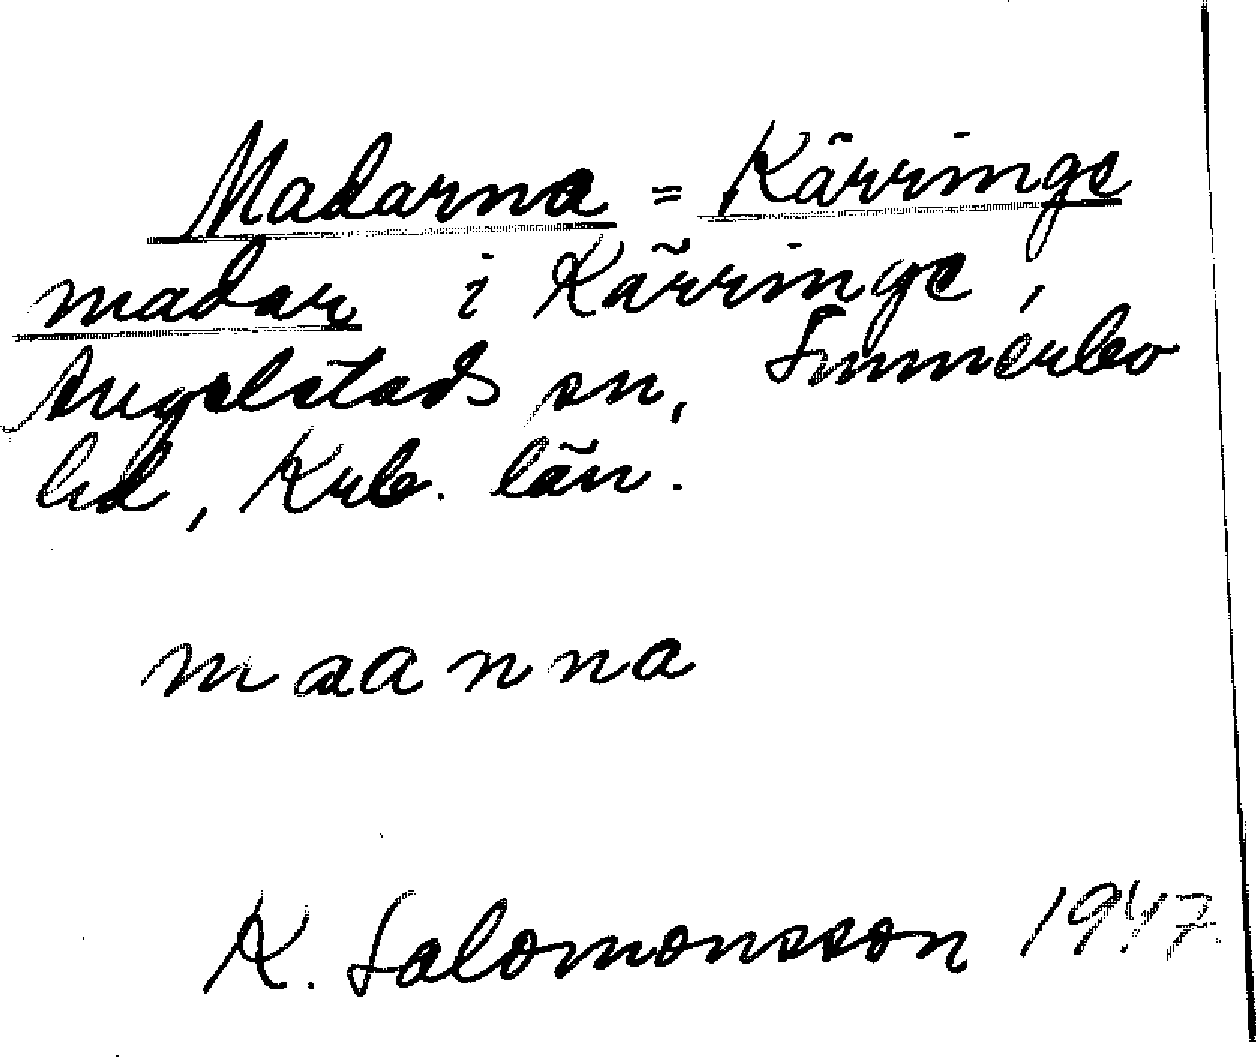 Madarna = Kärringe
madar i Kärringe,
Angelstads sn, Sunnerbo
hd, Krb. län.
maanna
K. Salomonsson 1947